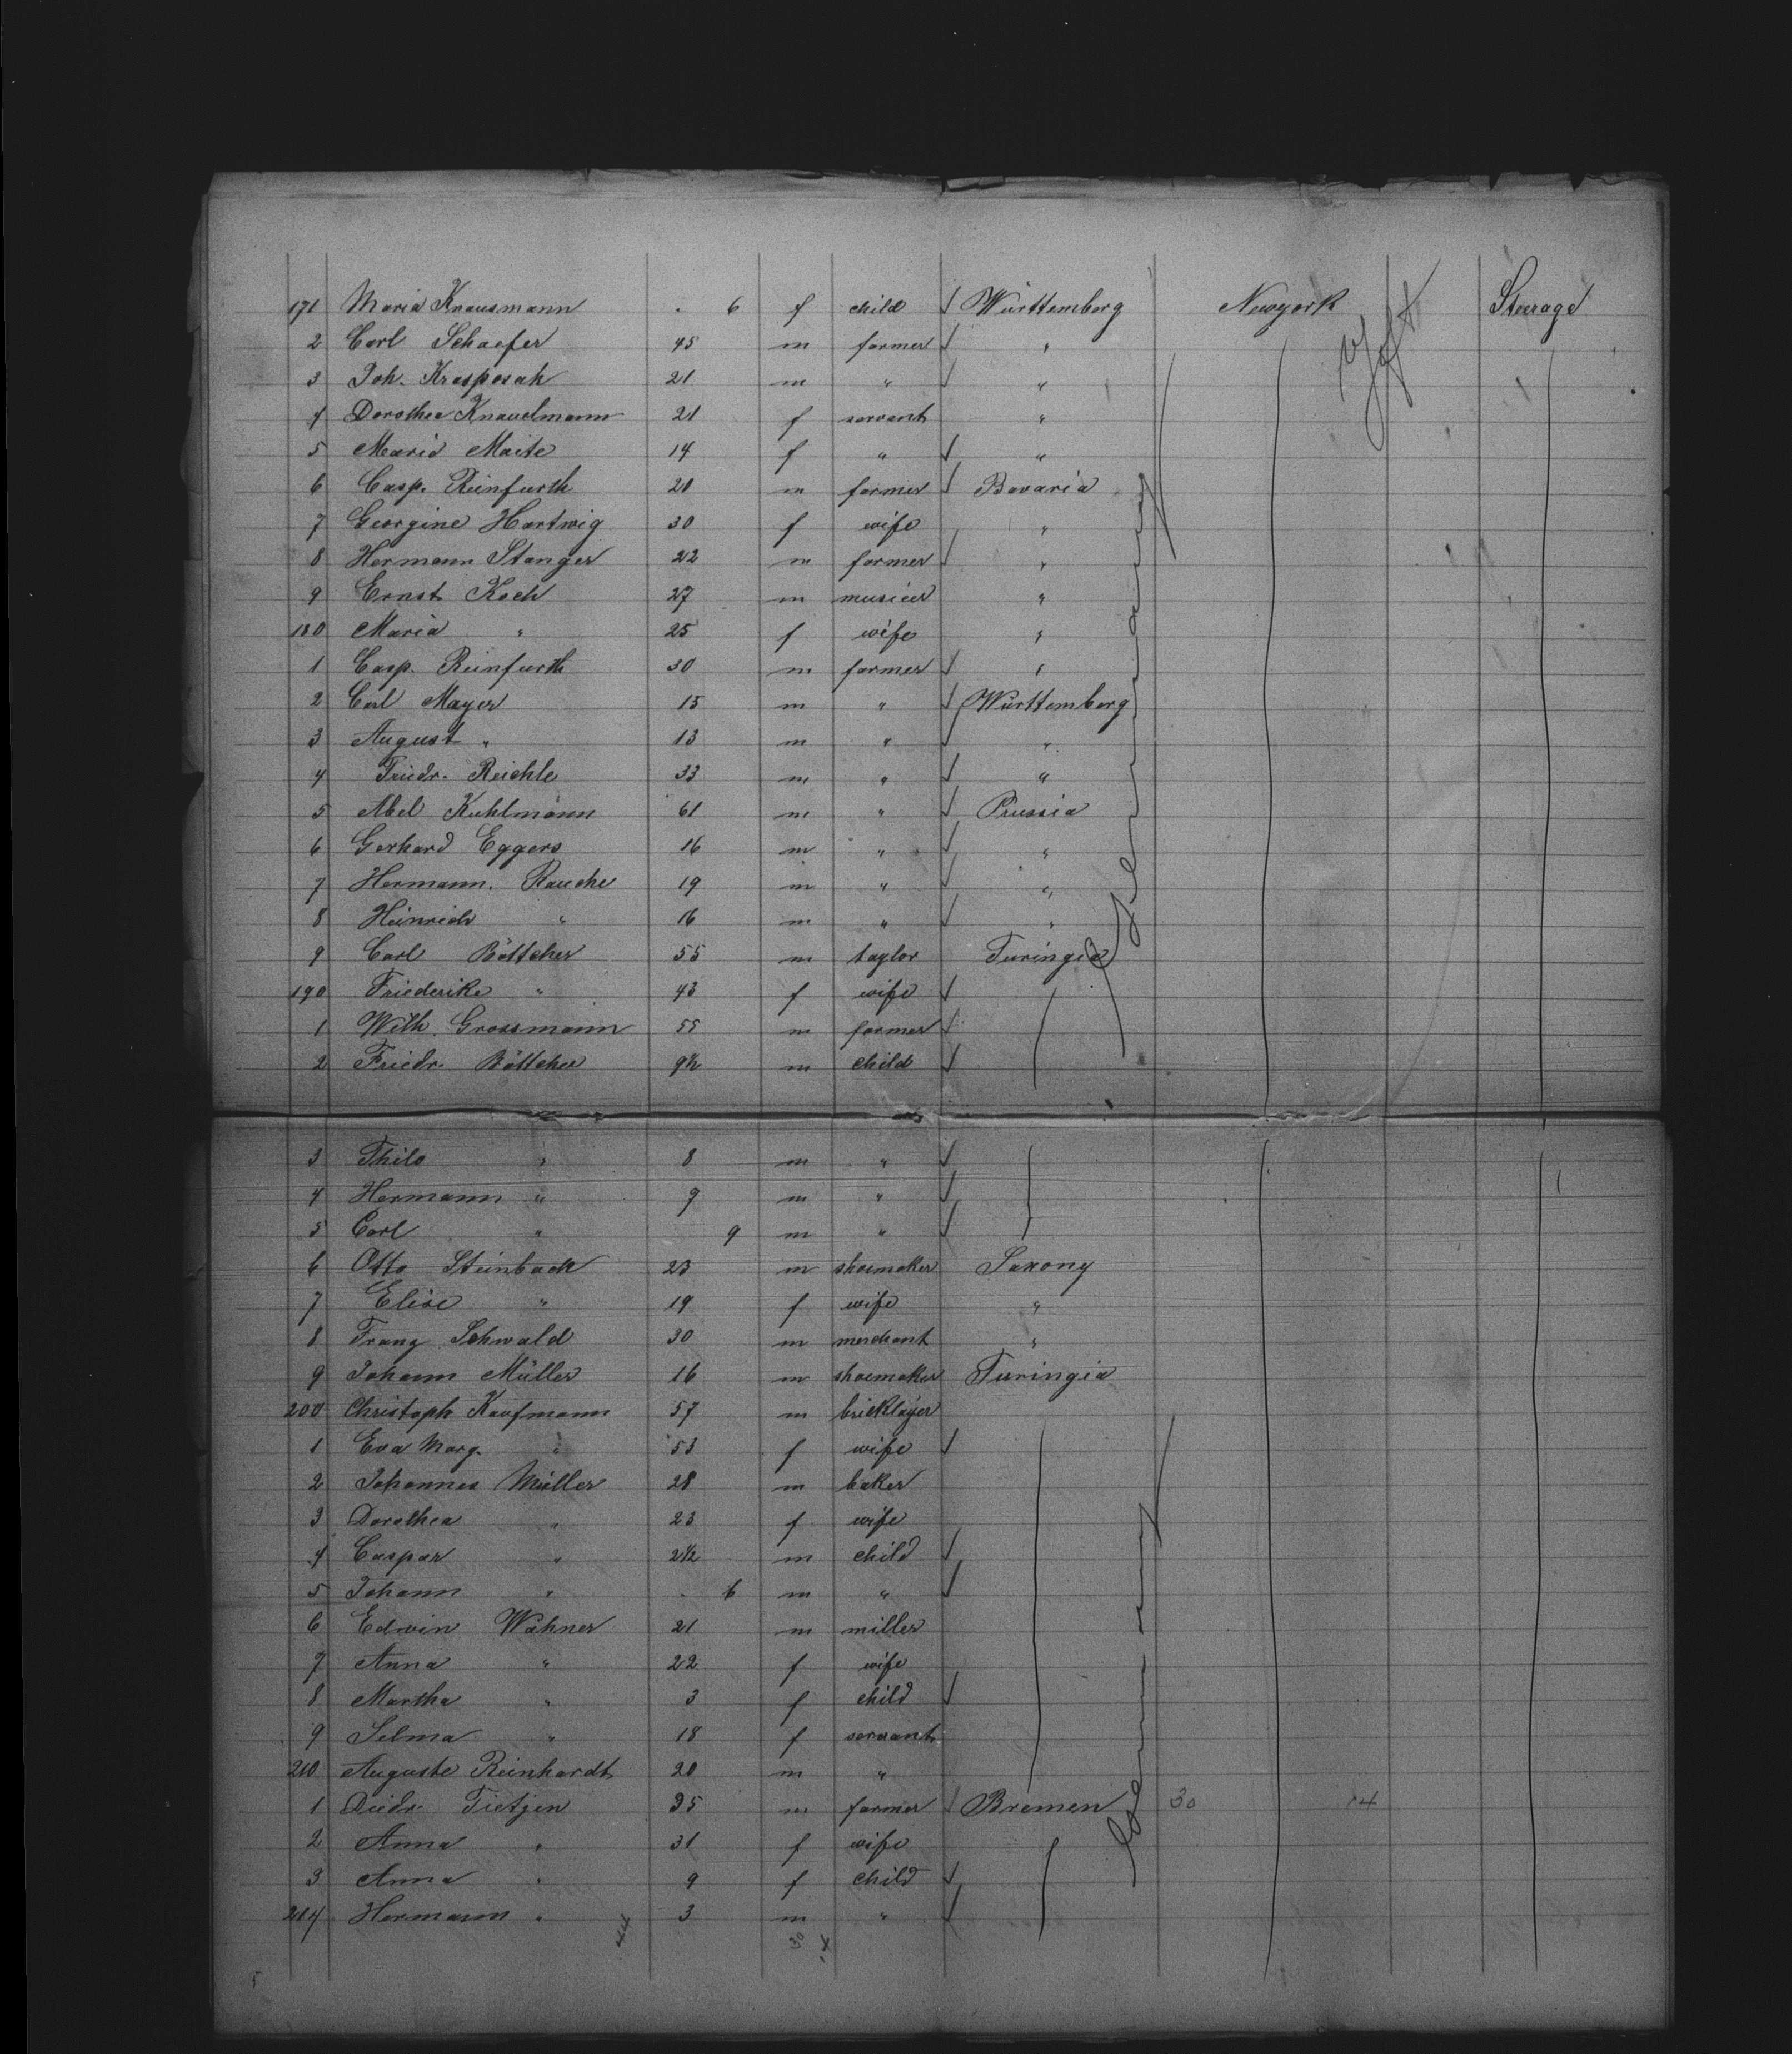 171 Maria Knausmann . 6 f child √ Württemberg Newyork Steerage
2 Carl Schaefer 45 m farmer √ "
3 Joh. Kraspesah 21 m " √ "
4 Dorothea Knauelmann 21 f servant "
5 Marie Maite 14 f " √ "
6 Casp. Reinfurth 20 m farmer √ Bavaria
7 Georgine Hartwig 30 f wife "
8 Hermann Stanger 22 m farmer √ "
9 Ernst Koch 27 m "
180 Maria " 25 f wife "
1 Casp. Reinfurth 30 m farmer √ "
2 Carl Mayer 15 m " √ Württemberg
3 August " 13 m " √ "
4 Friedr. Reichle 33 m " √ "
5 Abel Kuhlmann 61 m " √ Prussia
6 Gerhard Eggers 16 m " √ "
7 Hermann. Rauche 19 m " √ "
8 Heinrich " 16 m " √ "
9 Carl Böttcher 55 m taylor Turingia
190 Friederike " 43 f wife √
1 Wilh. Grossmann 55 m farmer √
2 Friedr. Böttcher 9½ m child √
3 Thilo " 8 m " √
4 Hermann " 7 m " √
5 Carl " 9 m " √
6 Otto Steinbach 23 m shoemaker Saxony
7 Elise " 19 f wife "
8 Franz Schwald 30 m merchant "
9 Johann Müller 16 m shoemaker Turingia
200 Christoph Kaufmann 57 m bricklayer
1 Eva Marg. " 53 f wife √
2 Johannes Müller 28 m baker
3 Dorothea " 23 f wife
4 Caspar " 2½ m child √
5 Johann " . 6 m " √
6 Edwin Wähner 21 m miller
7 Anna " 22 f wife
8 Martha " 3 f child √
9 Selma " 18 f servant
210 Auguste Reinhardt 20 m "
1 Diedr. Tietjen 35 m farmer √ Bremen 30 14
2 Anna " 31 f wife
3 Anna " 9 f child √
214 Hermann " 3 m " √
Germany
Germany
44 30 14